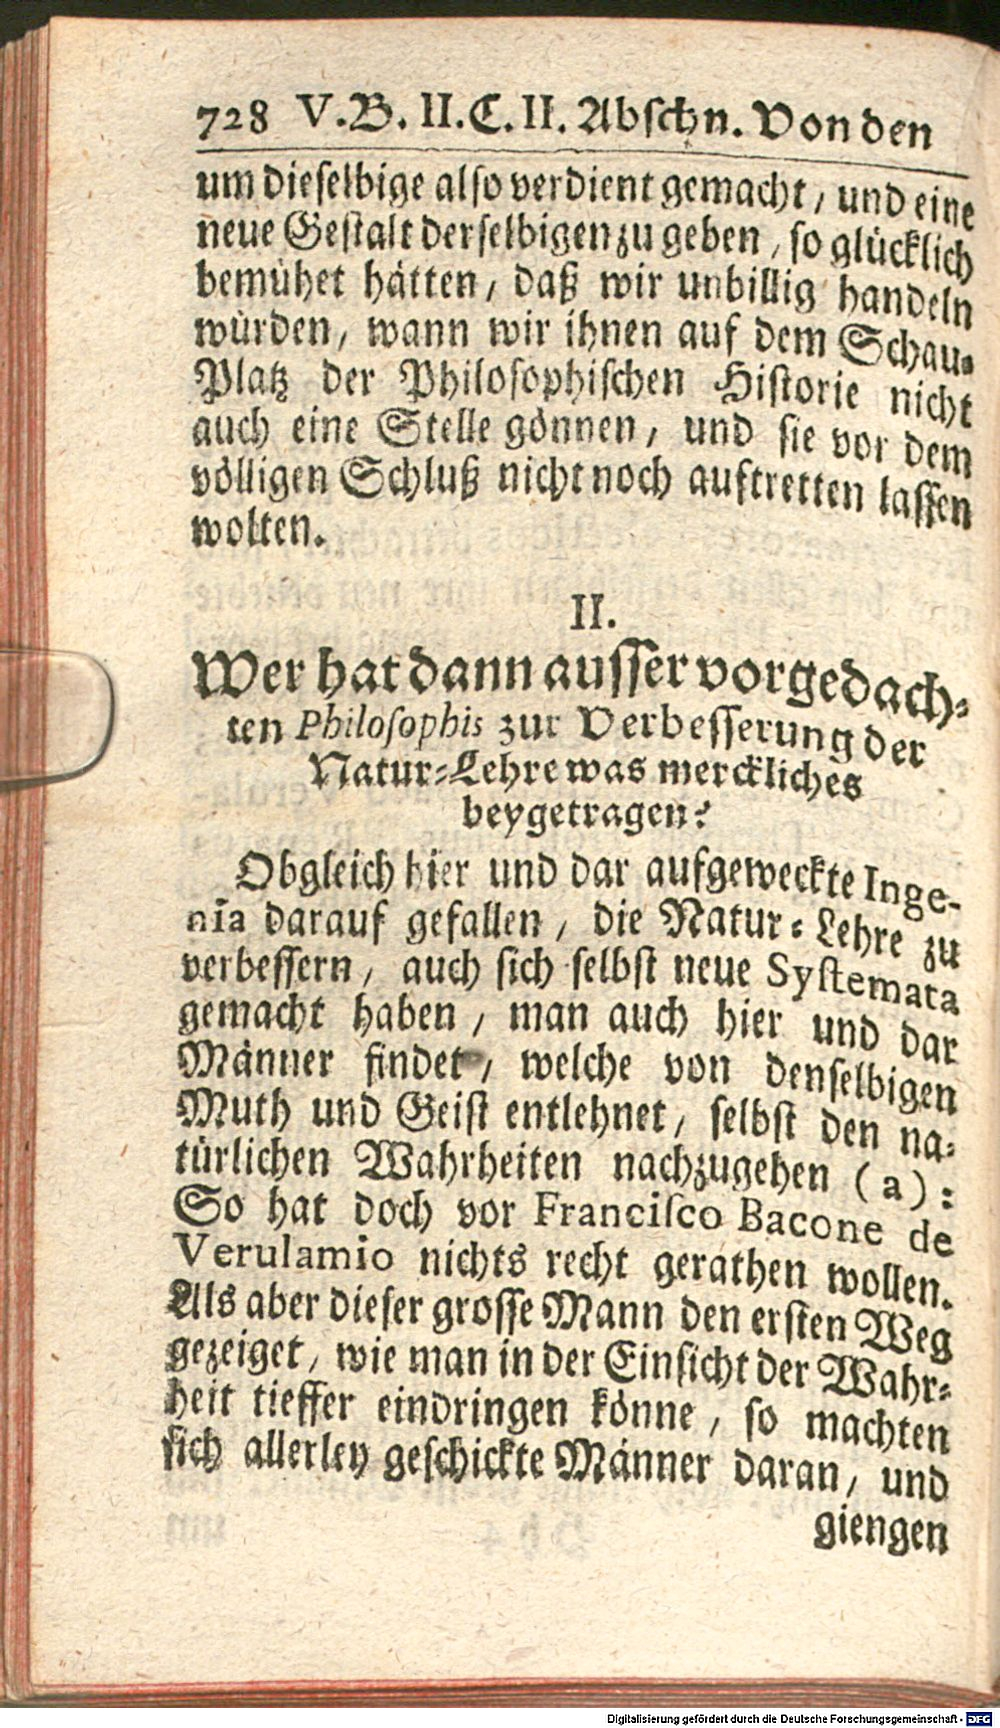 728 V.B. II.C. II. Abschn. Von den
um dieselbige also verdient gemacht, und eine
neue Gestalt derselbigen zu geben, so glücklich
bemühet hätten, daß wir unbillig handeln
würden, wann wir ihnen auf dem Schau-
Platz der Philosophischen Historie nicht
auch eine Stelle gönnen, und sie vor dem
völligen Schluß nicht noch auftretten lassen
wolten.
II.
Wer hat dann ausser vorgedach-
ten Philosophis zur Verbesserung der
Natur-Lehre was merckliches
beygetragen?
Obgleich hier und dar aufgeweckte Inge-
nia darauf gefallen, die Natur-Lehre zu
verbessern, auch sich selbst neue Systemata
gemacht haben, man auch hier und dar
Männer findet, welche von denselbigen
Muth und Geist entlehnet, selbst den na-
türlichen Wahrheiten nachzugehen (a):
So hat doch vor Francisco Bacone de
Verulamio nichts recht gerathen wollen.
Als aber dieser grosse Mann den ersten Weg
gezeiget, wie man in der Einsicht der Wahr-
heit tieffer eindringen könne, so machten
sich allerley geschickte Männer daran, und
giengen
Digitalisierung gefördert durch die Deutsche Forschungsgemeinschaft - DFG